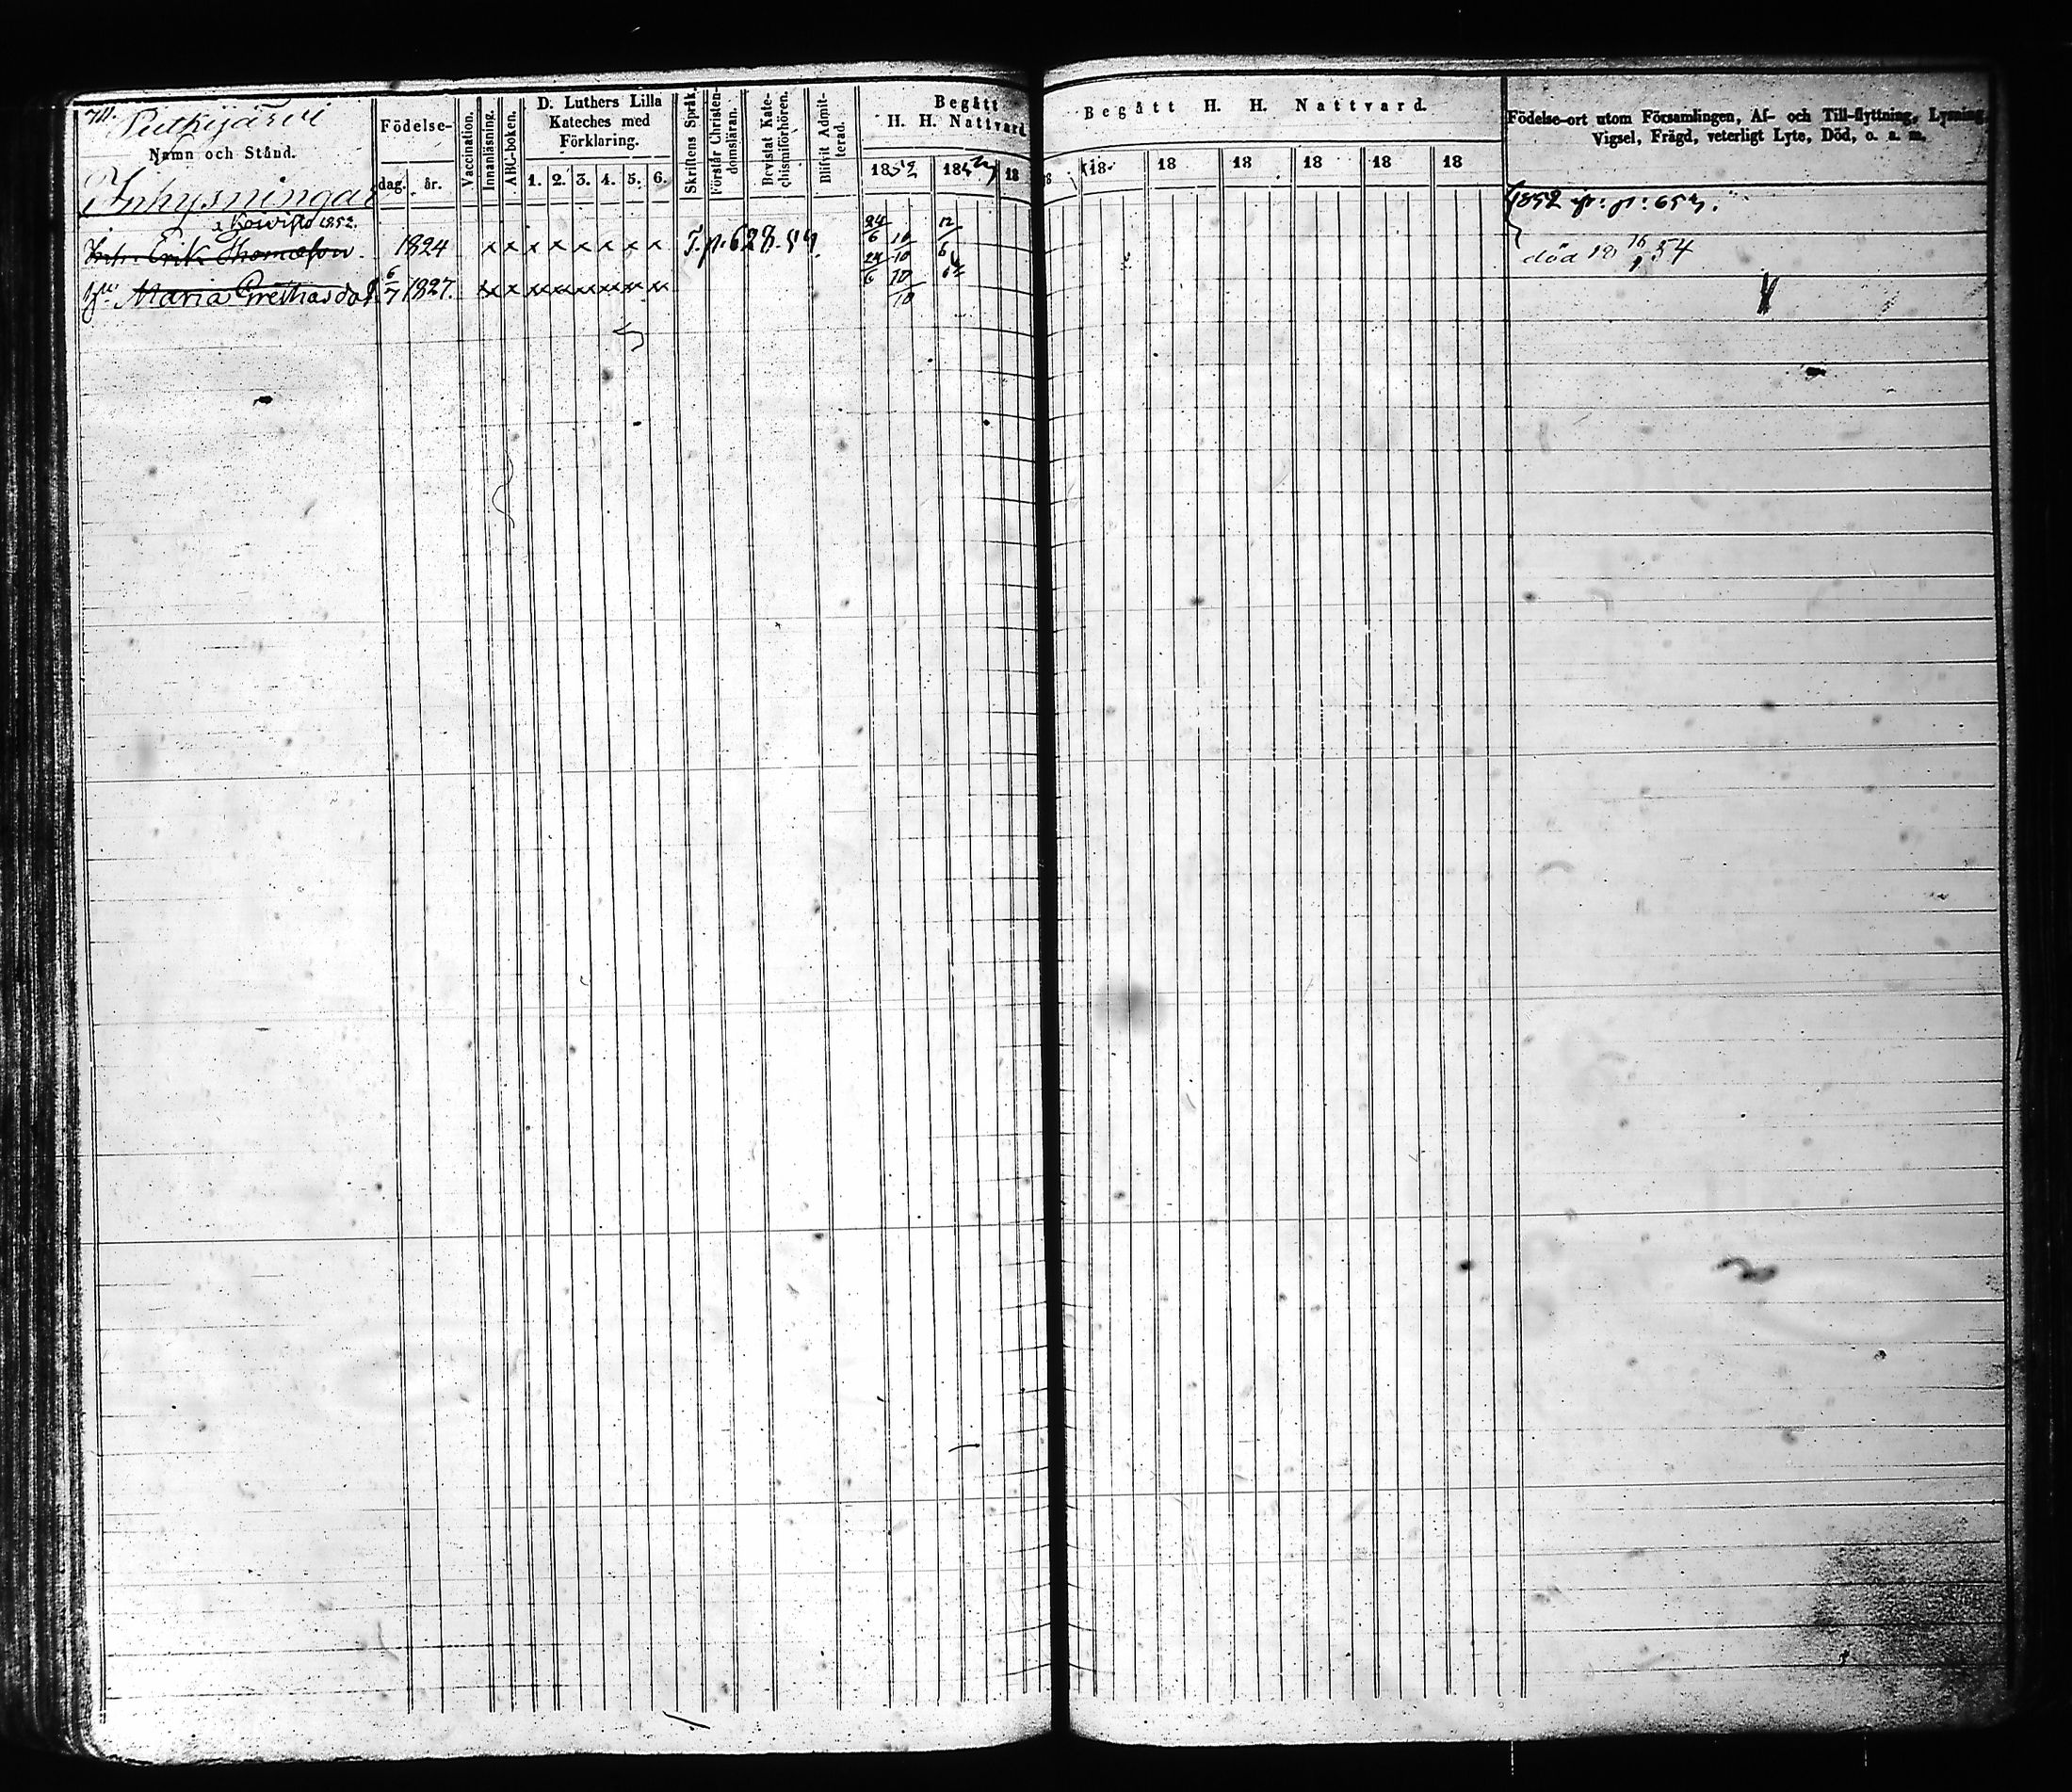 711.
Putkijärvi
Namn och Stånd.
Födelse-
dag. år.
Vaccination.
Innanläsning.
ABC-boken.
D. Luthers Lilla
Kateches med
Förklaring.
1. 2. 3. 4. 5. 6.
Skriftens Språk.
Förstår Christen-
domsläran.
Bevistat Kate-
chismiförhören.
Blifvit Admit-
terad.
Begått
H. H. Nattvard
1852 1853 18
Begått H. H. Nattvard.
18 18 18 18 18 18 18
Födelse-ort utom Församlingen, Af- och Till-flyttning, Lysning,
Vigsel, Frägd, veterligt Lyte, Död, o. a. m.
Inhysningar
Koivisto 1852.
1852 fr: p: 653.
Inh. Erik Thomasson. 1824 x x x x x x x x T. p. 628. 24/6 10/10 12/6 död 16 54
Hu Maria Grethasdo 6/7 1827. x x x x x x x x 24/6 10/10